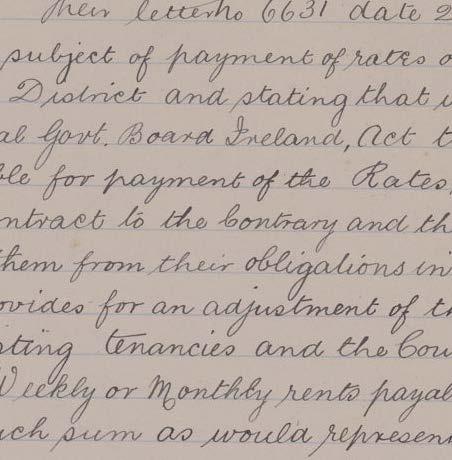 Their letter No 6631 date 2
subject of payment of rates o
District and stating that
al Govt. Board Ireland, Act t
ble for payment of the Rates,
ontract to the Contrary and th
them from their obligations in
ovides for an adjustment of th
sting tenancies and the Cou
Weekly or Monthly rents payab
uch sum as would represen